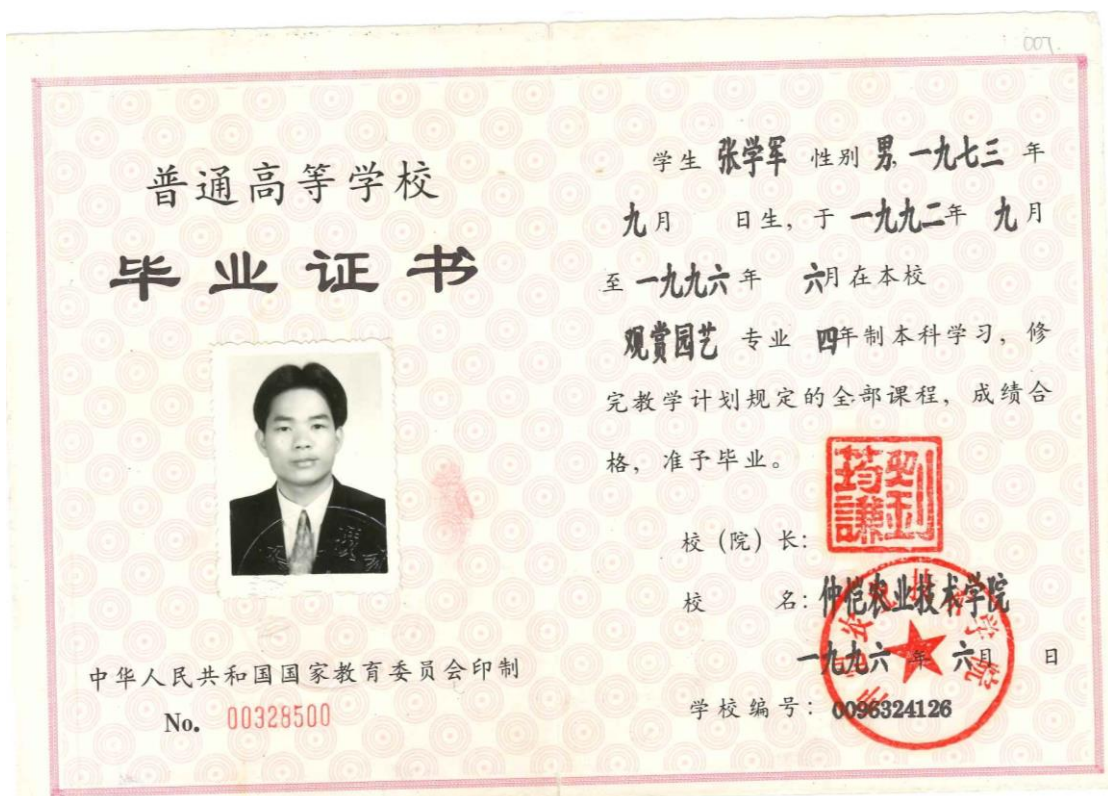 007.
普通高等学校
毕业证书
中华人民共和国国家教育委员会印制
No. 00328500
学生 张学军 性别 男, 一九七三 年
九月 日生, 于 一九九二年 九月
至 一九九六 年 六月在本校
观赏园艺 专业 四年制本科学习, 修
完教学计划规定的全部课程, 成绩合
格, 准予毕业。
校 (院) 长: 刘筠谦
校 名: 仲恺农业技术学院
一九九六 年 六月 日
学校编号: 0096324126